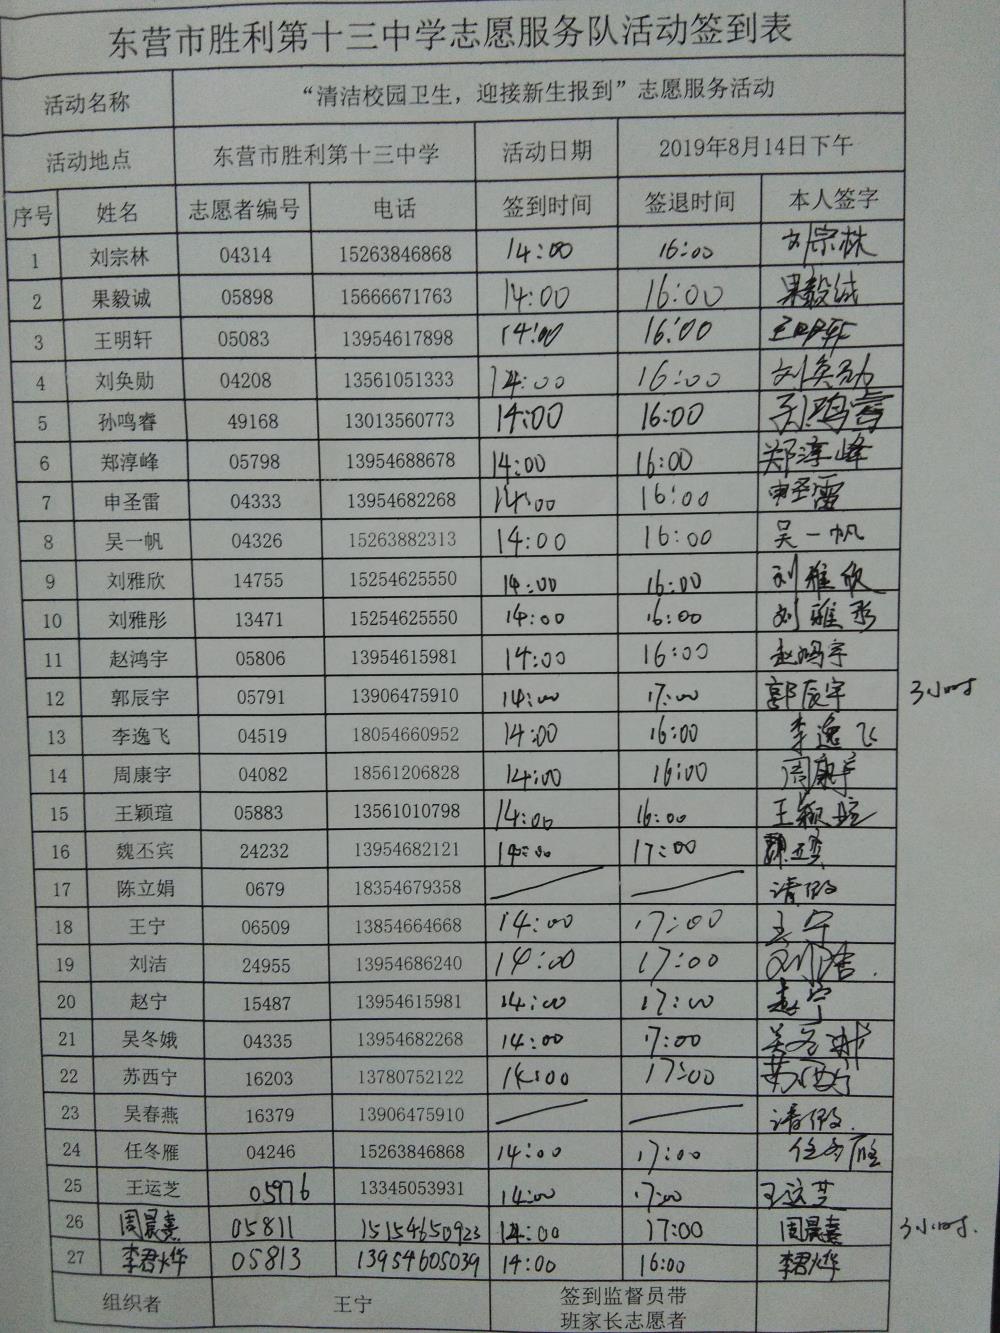 东营市胜利第十三中学志愿服务队活动签到表
活动名称 “清洁校园卫生，迎接新生报到”志愿服务活动
活动地点 东营市胜利第十三中学 活动日期 2019年8月14日下午
序号 姓名 志愿者编号 电话 签到时间 签退时间 本人签字
1 刘宗林 04314 15263846868 14:00 16:00 刘宗林
2 果毅诚 05898 15666671763 14:00 16:00 果毅诚
3 王明轩 05083 13954617898 14:00 16:00 王明轩
4 刘奂勋 04208 13561051333 14:00 16:00 刘奂勋
5 孙鸣睿 49168 13013560773 14:00 16:00 孙鸣睿
6 郑淳峰 05798 13954688678 14:00 16:00 郑淳峰
7 申圣雷 04333 13954682268 14:00 16:00 申圣雷
8 吴一帆 04326 15263882313 14:00 16:00 吴一帆
9 刘雅欣 14755 15254625550 14:00 16:00 刘雅欣
10 刘雅彤 13471 15254625550 14:00 16:00 刘雅彤
11 赵鸿宇 05806 13954615981 14:00 16:00 赵鸿宇
12 郭辰宇 05791 13906475910 14:00 17:00 郭辰宇 3小时
13 李逸飞 04519 18054660952 14:00 16:00 李逸飞
14 周康宇 04082 18561206828 14:00 16:00 周康宇
15 王颖瑄 05883 13561010798 14:00 16:00 王颖瑄
16 魏丕宾 24232 13954682121 14:00 17:00 魏丕宾
17 陈立娟 0679 18354679358 请假
18 王宁 06509 13854664668 14:00 17:00 王宁
19 刘洁 24955 13954686240 14:00 17:00 刘洁.
20 赵宁 15487 13954615981 14:00 17:00 赵宁
21 吴冬娥 04335 13954682268 14:00 17:00 吴冬娥
22 苏西宁 16203 13780752122 14:00 17:00 苏西宁
23 吴春燕 16379 13906475910 请假.
24 任冬雁 04246 15263846868 14:00 17:00 任冬雁
25 王运芝 05976 13345053931 14:00 17:00 王运芝
26 周晨熹 05811 15154650923 14:00 17:00 周晨熹 3小时.
27 李君烨 05813 13954605039 14:00 16:00 李君烨
组织者 王宁 签到监督员带
班家长志愿者